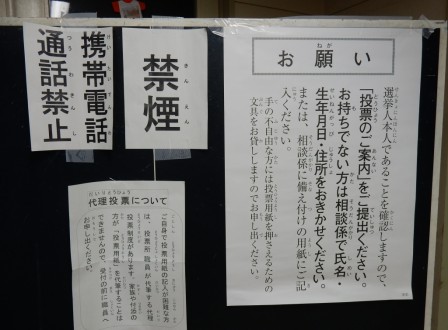 携帯電話
通話禁止
禁煙
お願い
選挙人本人であることを確認しますので、
「投票のご案内」をご提出ください。
お持ちでない方は相談係で氏名・
生年月日・住所をおきかせください。
または、相談係に備え付けの用紙にご記
入ください。
手の不自由な方には投票用紙を押さえるための
文具をお貸ししますのでお申し出ください。
代理投票について
ご自身で投票用紙の記入が困難な方
は、投票所職員が代筆する代理
投票制度があります。家族や付添の
方が「投票用紙」を代筆することは
できませんので、受付の前に職員へ
お申し出ください。